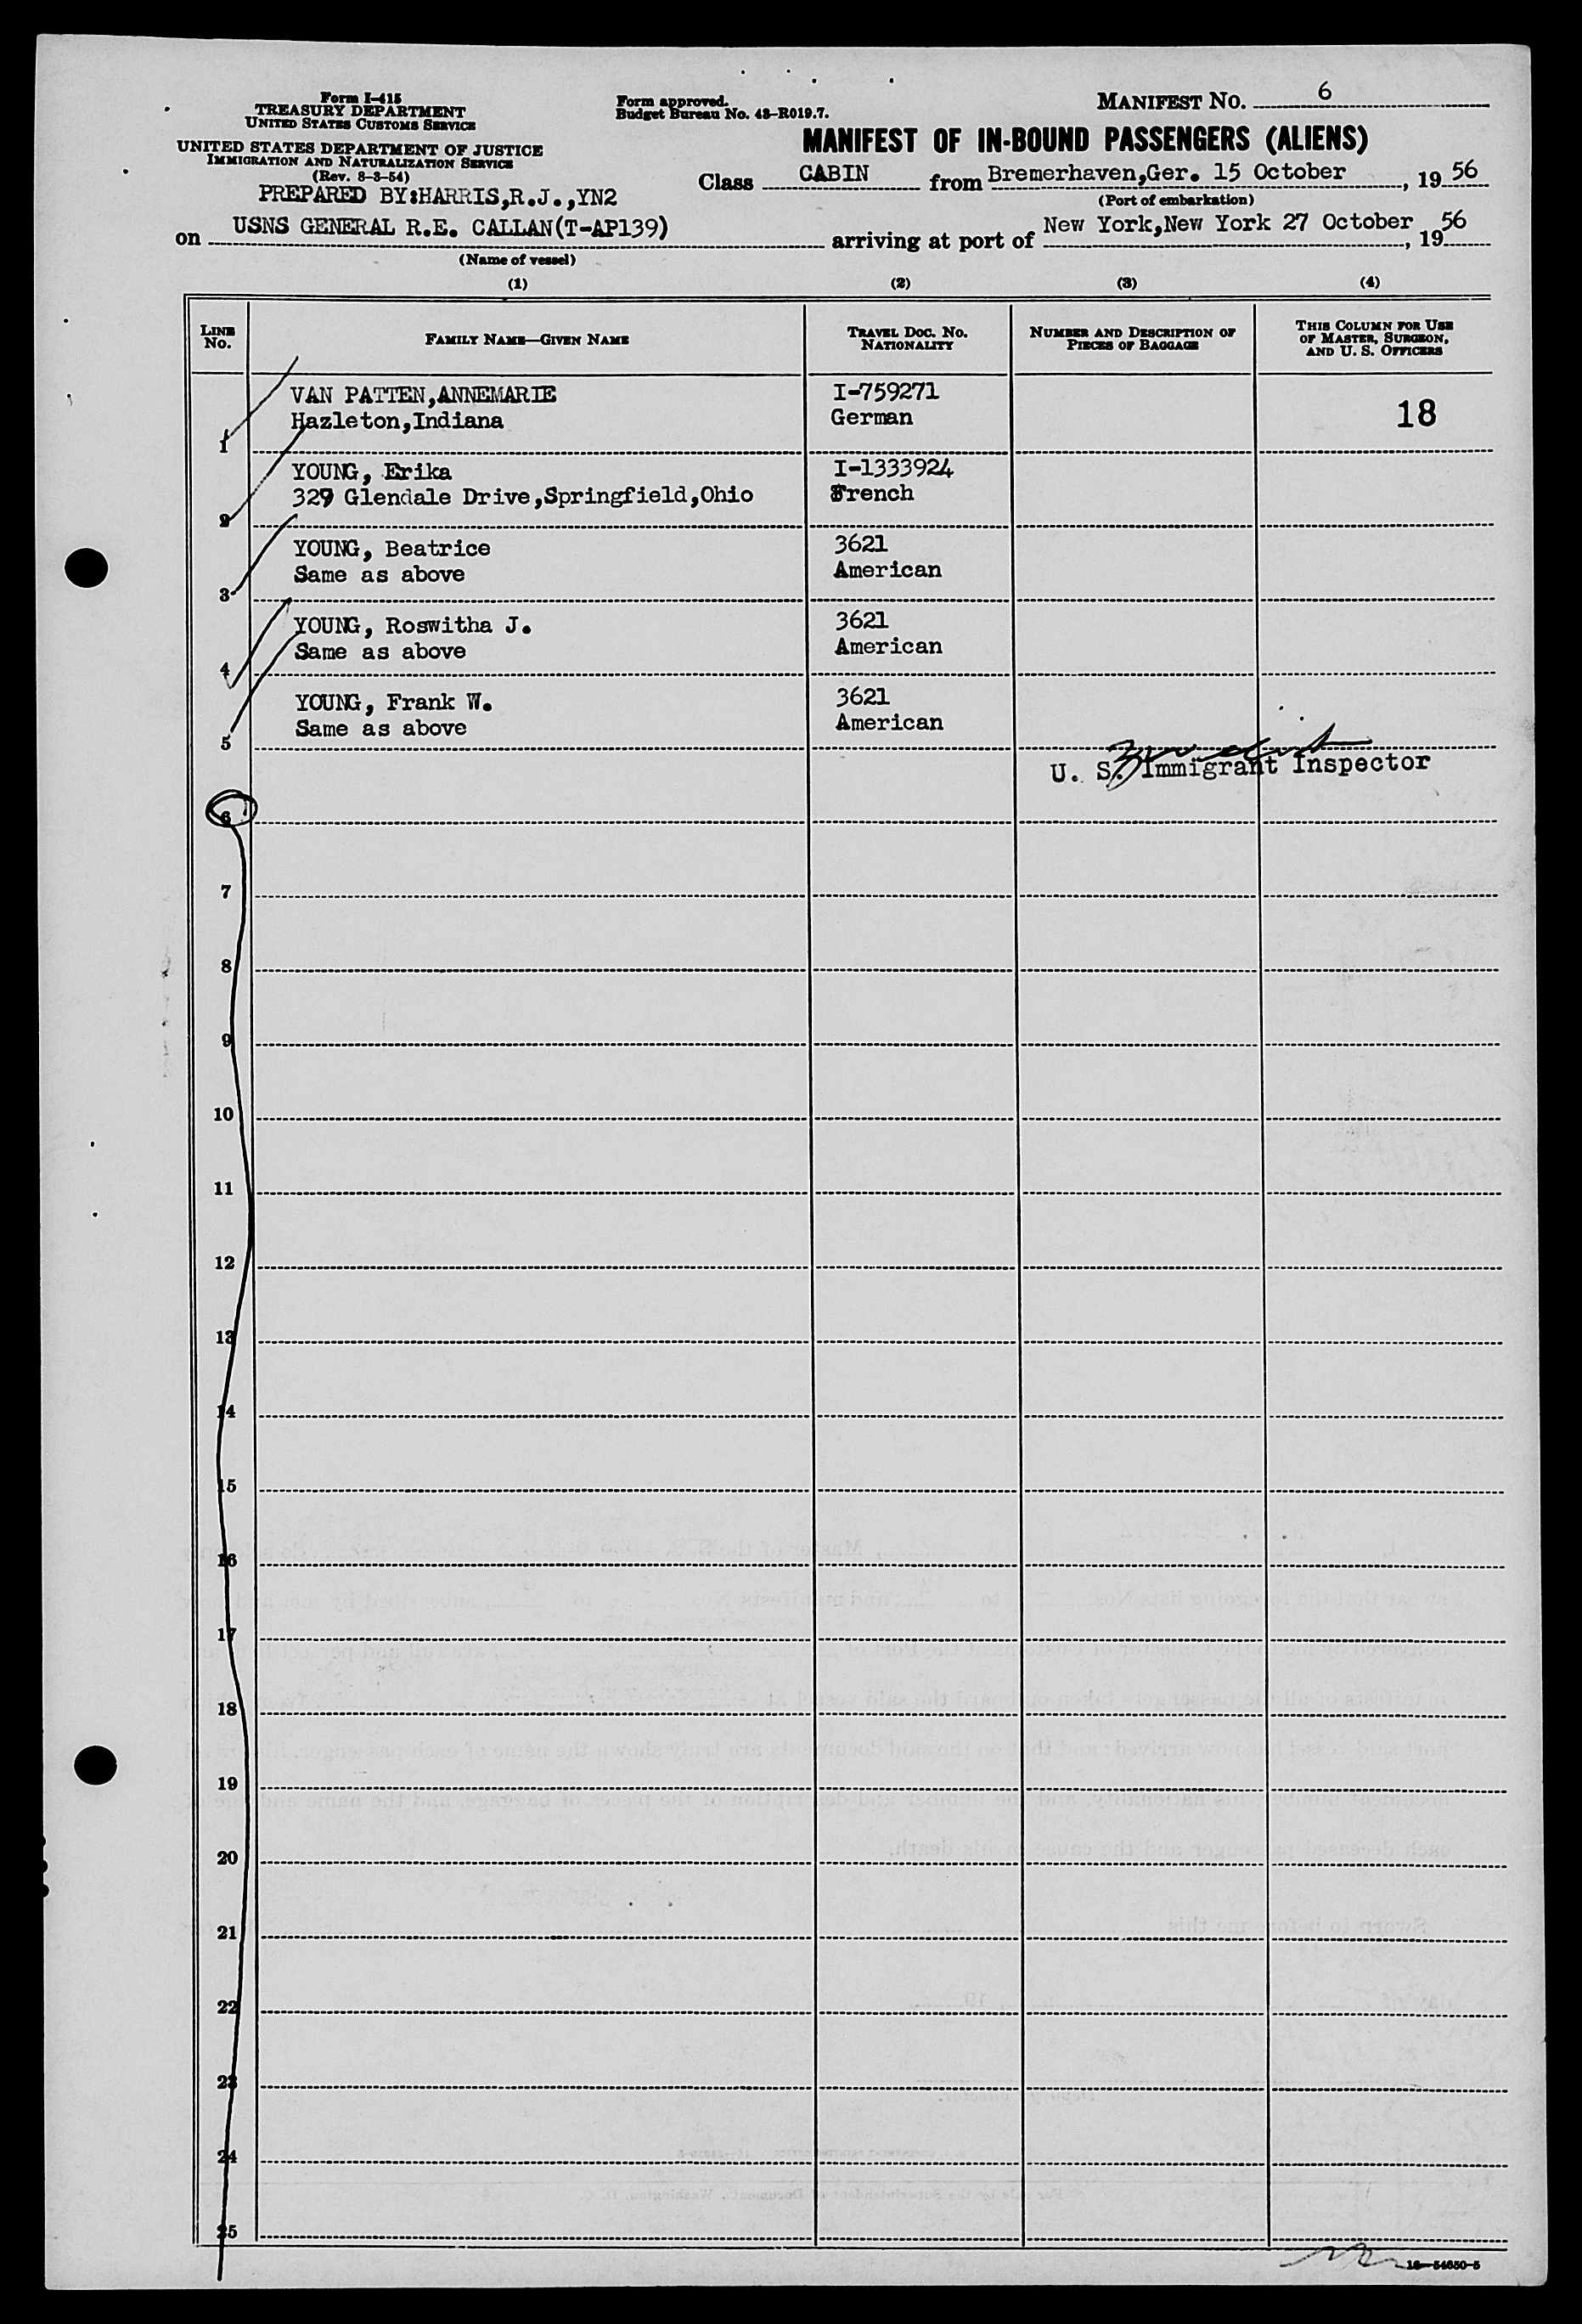 Form I-415
TREASURY DEPARTMENT
UNITED STATES CUSTOMS SERVICE
UNITED STATES DEPARTMENT OF JUSTICE
IMMIGRATION AND NATURALIZATION SERVICE
(Rev. 8-3-54)
PREPARED BY:HARRIS,R.J.,YN2
Form approved.
Budget Bureau No. 43-R019.7.
MANIFEST NO. 6
MANIFEST OF IN-BOUND PASSENGERS (ALIENS)
Class CABIN from Bremerhaven,Ger. 15 October, 19 56
(Port of embarkation)
on USNS GENERAL R.E. CALLAN(T-AP139) arriving at port of New York,New York 27 October, 19 56
(Name of vessel)
(1) (2) (3) (4)
LINE NO.
FAMILY NAME—GIVEN NAME
TRAVEL DOC. NO.
NATIONALITY
NUMBER AND DESCRIPTION OF
PIECES OF BAGGAGE
THIS COLUMN FOR USE
OF MASTER, SURGEON,
AND U. S. OFFICERS
VAN PATTEN,ANNEMARIE I-759271
1 Hazleton,Indiana German 18
YOUNG, Erika I-1333924
2 329 Glendale Drive,Springfield,Ohio French
YOUNG, Beatrice 3621
3 Same as above American
YOUNG, Roswitha J. 3621
4 Same as above American
YOUNG, Frank W. 3621
5 Same as above American
U. S. Immigrant Inspector
6
7
8
9
10
11
12
13
14
15
16
17
18
19
20
21
22
23
24
25
16-54650-5